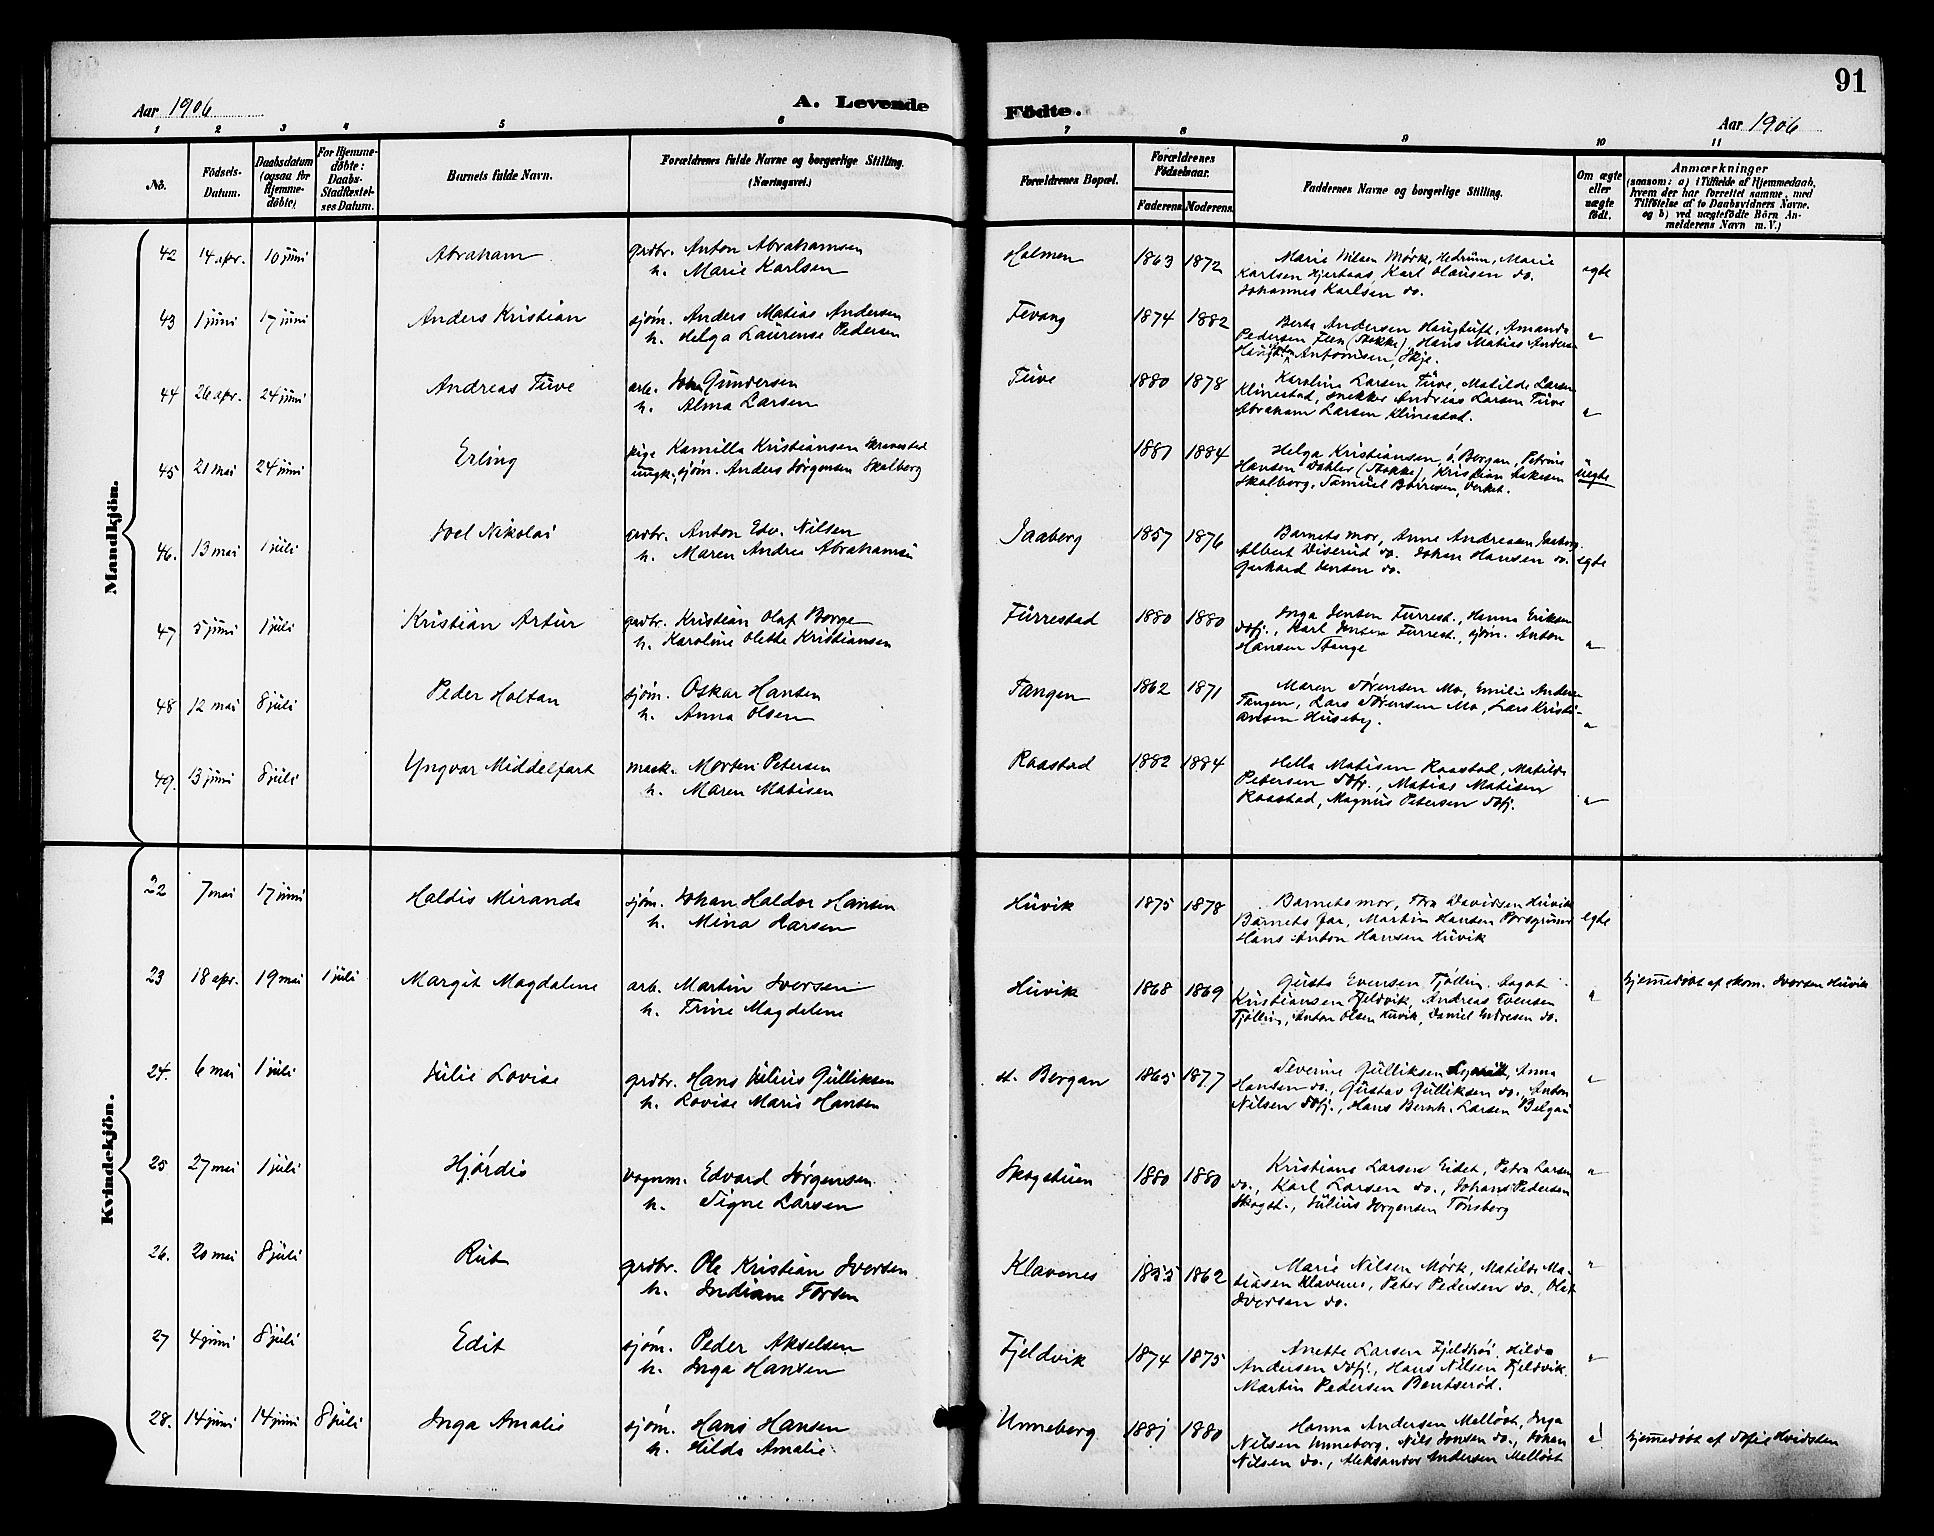 91
Aar 1906 A. Levende Födte. Aar 1906
1 2 3 4 5 6 7 8 9 10 11
No. Födsels-Datum. Daabsdatum (ogsaa for Hjemme-döbte) For Hjemme-döbte: Daabs-Stadfæstel-ses Datum. Barnets fulde Navn. Forældrenes fulde Navne og borgerlige Stilling. (Næringsvei.) Forældrenes Bopæl. Forældrenes Födselsaar. Faderens Moderens Faddernes Navne og borgerlige Stilling. Om ægte eller uægte födt. Anmærkninger (saasom: a) i Tilfælde af Hjemmedaab, hvem der har forrettet samme, med Tilföielse af to Daabsvidners Navne, og b) ved uægtefödte Börn An-melderens Navn m.V.)
Mandkjön.
42 14 apr. 10 juni Abraham grdbr. Anton Abrahamsen Holmen 1863 1872 Marie Nilsen Mørk, Hedrum, Marie egte
h. Marie Karlsen Karlsen Hjertaas, Karl Olausen do.
Johannes Karlsen do.
43 1 juni 17 juni Anders Kristian sjøm. Anders Matias Andersen Fevang 1874 1882 Berta Andersen Haugtuft, Amanda "
h. Helga Laurense Pedersen Pedersen Feen (Stokke), Hans Matias Anders.
Antonisen, Skje.
44 26 apr. 24 juni Andreas Tuve arb. Johan Gundersen Tuve 1880 1878 Karoline Larsen Tuve, Matilde Larsen "
h. Alma Larsen Klinestad, snekker Andreas Larsen Tuve
Abraham Larsen Klinestad.
45 21 mai 24 juni Erling pige Kamilla Kristiansen Skravestad 1881 1884 Helga Kristiansen ö. Bergan, Petrine uegte
ungk., sjøm. Anders Jørgensen Skalberg Hansen Dahler (Stokke), Kristian
Skolberg, Samuel Børresen, Verket.
46. 13 mai 1 juli Joel Nikolai grdbr. Anton Edv. Nilsen Jaaberg 1857 1876 Barnets mor, Anne Andreasen Jaaberg egte
h. Maren Andrea Abrahams. Albert Diserud do. Johan Hansen do.
Gerhard Jensen do.
47 5 juni 1 juli Kristian Artur grdbr. Kristian Olaf Borge Furrestad 1880 1880 Inga Jensen Furrest., Hanna Eriksen "
h. Karoline Olette Kristiansen Sdfj., Karl Jensen Furrest., sjøm. Anton
Hansen Stange
48 12 mai 8 juli Peder Holtan sjøm. Oskar Hansen Tangen 1862 1871 Maren Sørensen Mo, Emilie Anders. "
h. Anna Olsen Tangen, Lars Sørensen Mo, Lars Kristi-
ansen Huseby.
49. 13 juni 8 juli Yngvar Middelfart mask. Morten Petersen Raastad 1882 1884 Hella Matisen Raastad, Matilde "
h. Maren Matisen Petersen Sdfj., Matias Matisen
Raastad, Magnus Petersen Sdfj.
Kvindekjön.
22 7 mai 17 juni Haldis Miranda sjøm. Johan Haldor Hansen Huvik 1875 1878 Barnets mor, Tora Davidsen Huvik egte
h. Mina Larsen Barnets far, Martin Hansen Porsgrund
Hans Anton Hansen Huvik
23 18 apr. 19 mai 1 juli Margit Magdalene arb. Martin Iversen Huvik 1868 1869 Gusta Evensen Tjølling, Aagot " hjemmedøbt af skom. Iversen Huvik
h. Trine Magdelene Kristiansen Fjeldvik, Andreas Evensen
Tjølling, Anton Olsen Huvik, Daniel Endresen do.
24. 6 mai 1 juli Julie Lovise grdbr. Hans Julius Gulliksen st. Bergan 1865 1877 Severine Gulliksen Anna "
h. Lovise Marie Hansen Hansen do., Gustav Gulliksen do., Anton
Nilsen Sdfj., Hans Bernh. Larsen Belgau
25 27 mai 1 juli Hjørdis vognm. Edvard Jørgensen Skogstuen 1880 1880 Kristiane Larsen Eidet, Petra Larsen "
h. Signe Larsen do., Karl Larsen do., Johans Pedersen
Skogst., Julius Jørgensen Tønsberg
26. 20 mai 8 juli Rut grdbr. Ole Kristian Iversen Klavenes 1855 1862 Marie Nilsen Mørk, Matilde Ma- "
h. Indiane Torsen tiasen Klavenes, Peter Pedersen do, Olaf
Iversen do.
27 4 juni 8 juli Edit sjøm. Peder Akselsen Fjeldvik 1874 1875 Anette Larsen Fjeldbøi, Hilda "
h. Inga Hansen Andersen Sdfj., Hans Nilsen Fjeldvik
Martin Pedersen Bentserød.
28. 14 juni 14 juni 8 juli Inga Amalie sjøm. Hans Hansen Unneberg 1881 1880 Hanna Andersen Melløst, Inga " hjemmedøbt af Sofie Hvidsten
h. Hilda Amalie Nilsen Unneberg, Nils Jonsen do., Johan
Nilsen do., Aleksander Andersen Melløst